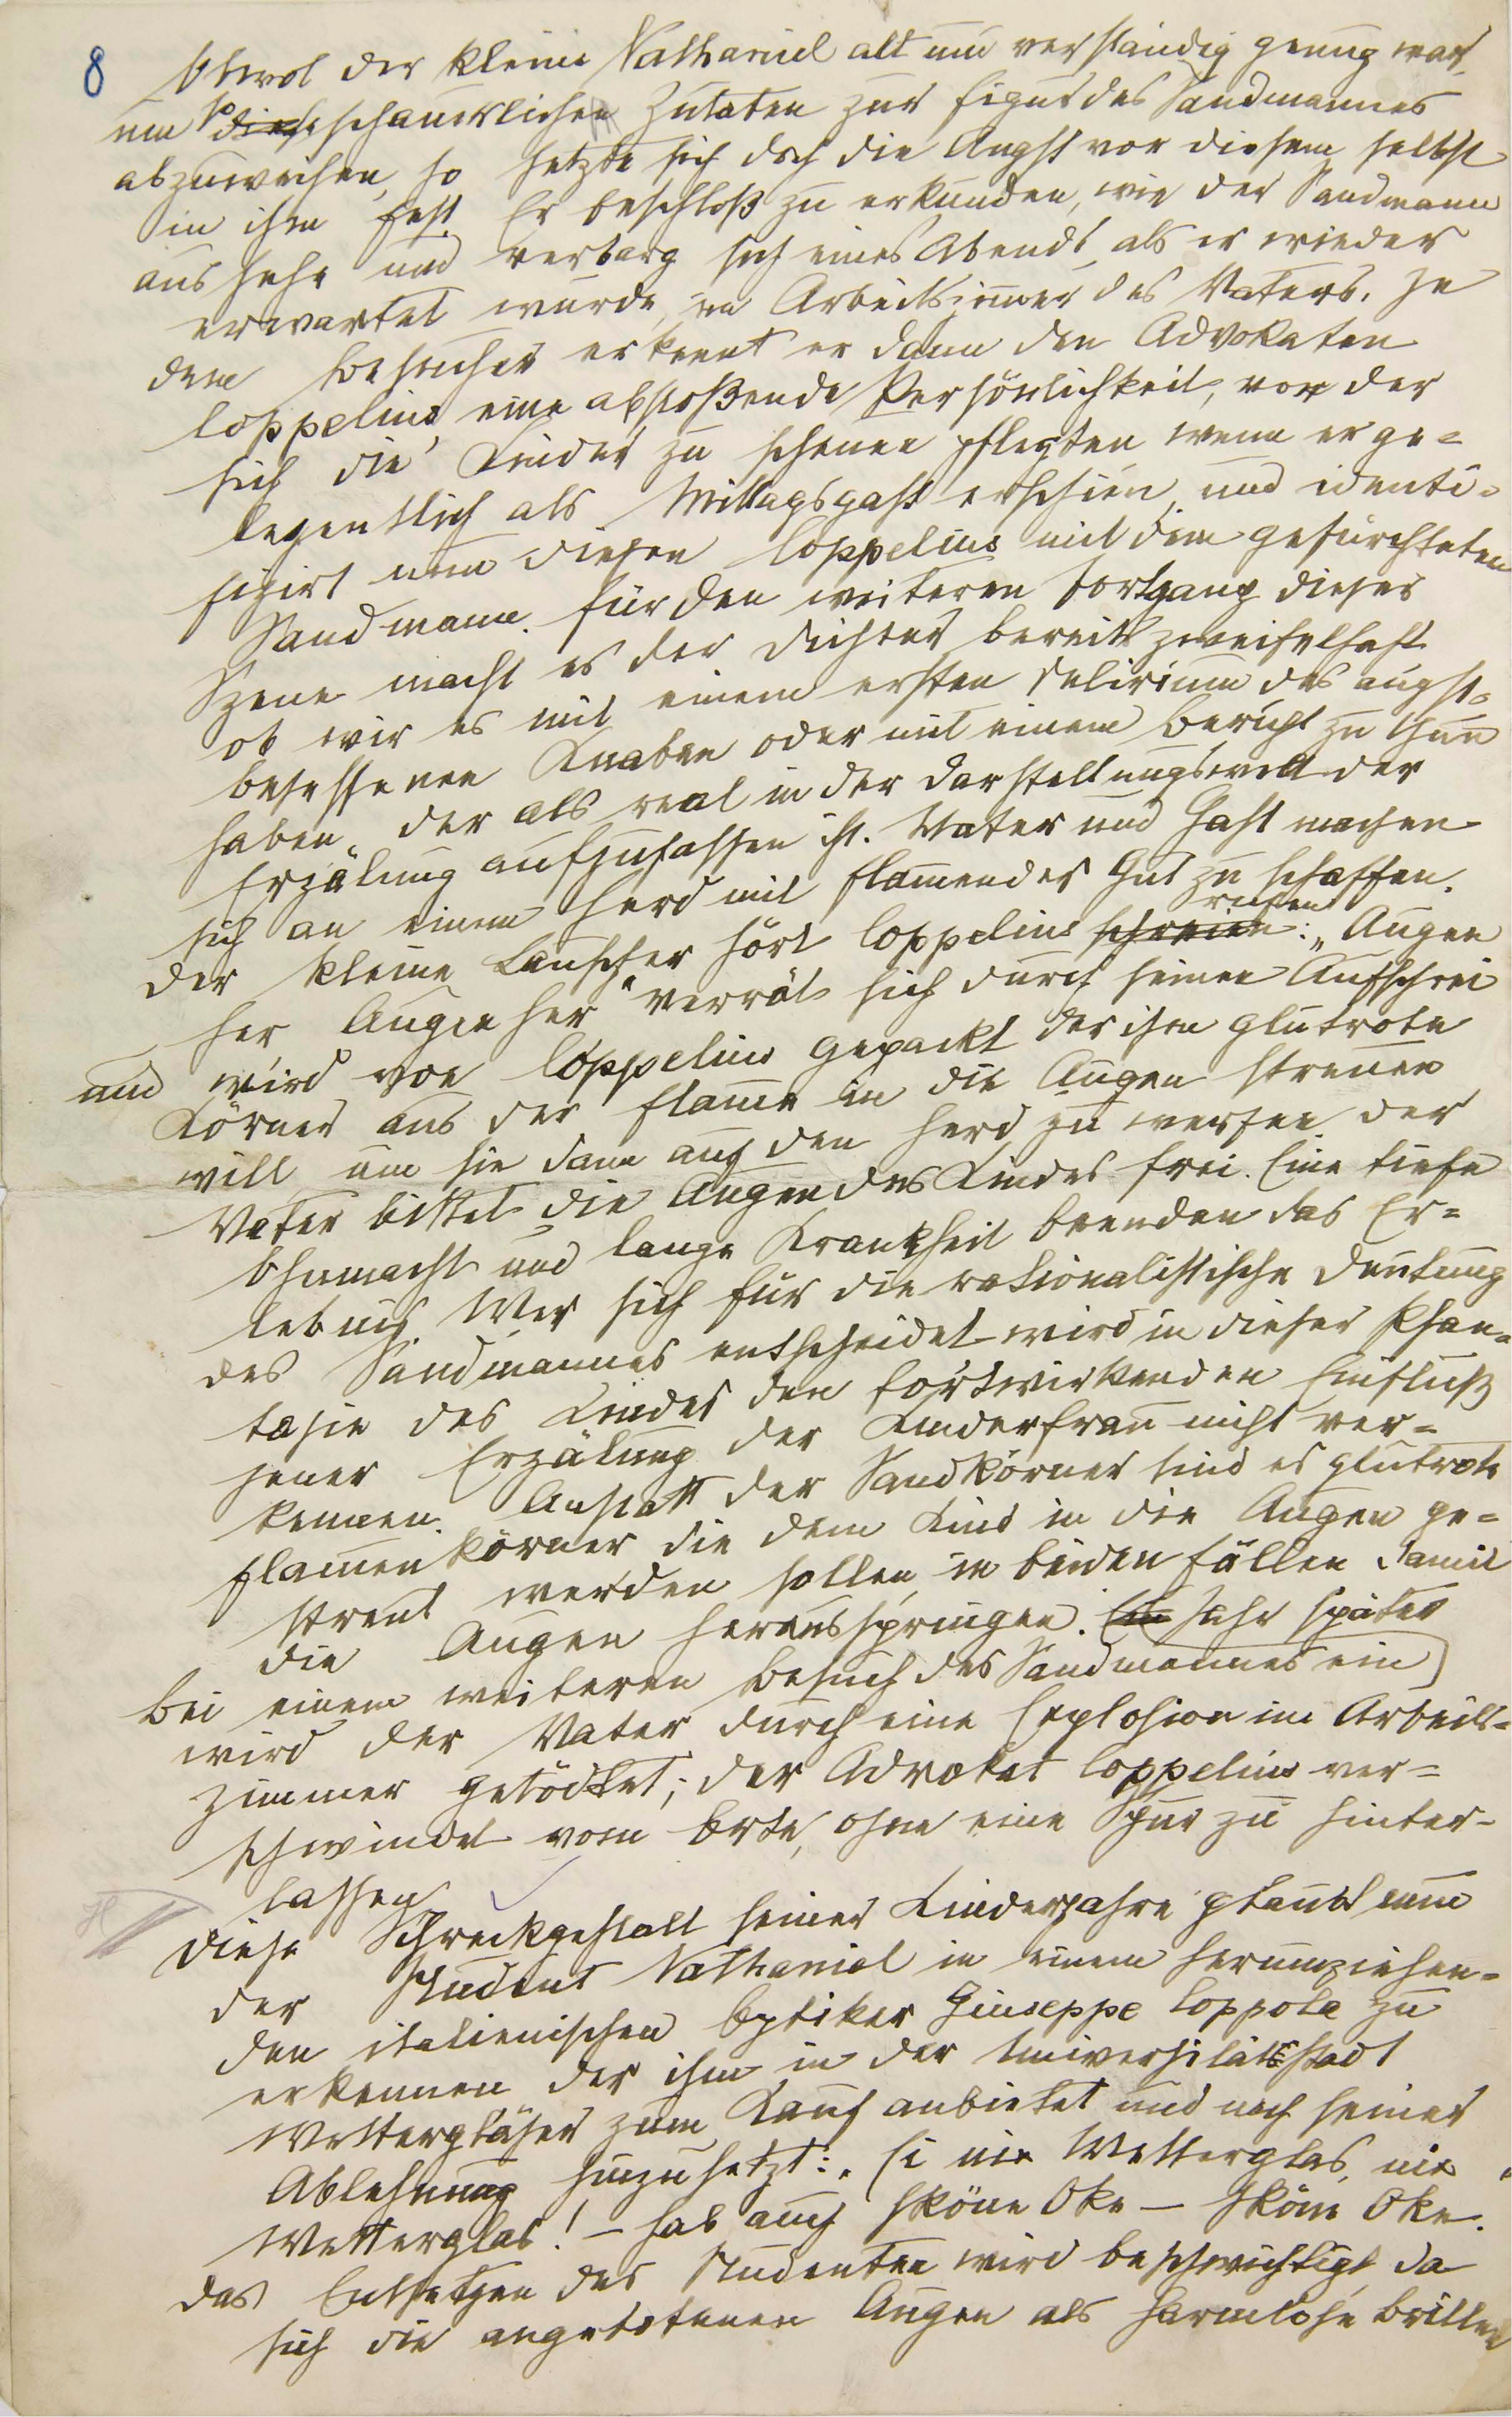 8
Obwol der kleine Nathaniel alt und verständig genug war,
um so diese schauerlichen Zutaten zur Figur des Sandmannes
abzuweisen, so setzte sich doch die Angst vor diesem selbst
in ihm fest. Er beschloß zu erkunden, wie der Sandmann
aussehe und verbarg sich eines Abends, als er wieder
erwartet wurde, im Arbeitszimmer des Vaters. In
dem Besucher erkennt er dann den Advokaten
Coppelius, eine abstoßende Persönlichkeit, vor der
sich die Kinder zu scheuen pflegten wenn er ge=
legentlich als Mittagsgast erschien, und identi=
fizirt nun diesen Coppelius mit dem gefürchteten
Sandmann. Für den weiteren Fortgang dieser
Szene macht es der Dichter bereits zweifelhaft
ob wir es mit einem ersten Delirium des angst=
besessenen Knaben oder mit einem Bericht zu thun
haben, der als real in der Darstellungswelt der
Erzälung aufzufassen ist. Vater und Gast machen
sich an einem Herd mit flammender Glut zu schaffen.
rufen
Der kleine Lauscher hört Coppelius schreien: „Augen
her Augen her“ verrät sich durch seinen Aufschrei
und wird von Coppelius gepackt der ihm glutrote
Körner aus der Flamme in die Augen streuen
will, um sie dann auf den Herd zu werfen. Der
Vater bittet die Augen des Kindes frei. Eine tiefe
Ohnmacht und lange Krankheit beenden das Er=
lebnis. Wer sich für die rationalistische Deutung
des Sandmannes entscheidet wird in dieser Phan=
tasie des Kindes den fortwirkenden Einfluß
jener Erzälung der Kinderfrau nicht ver=
kennen. Anstatt der Sandkörner sind es glutrote
Flammenkörner die dem Kind in die Augen ge=
streut werden sollen, in beiden Fällen damit
die Augen herausspringen. Ein Jahr später
bei einem weiteren Besuch des Sandmannes ein
wird der Vater durch eine Explosion im Arbeits=
zimmer getödtet; der Advokat Coppelius ver=
schwindet vom Orte, ohne eine Spur zu hinter-
lassen.
Diese Schreckgestalt seiner Kinderjahre glaubt nun
der Student Nathaniel in einem herumziehen=
den italienischen Optiker Giuseppe Coppola zu
erkennen der ihm in der Universitätsstadt
Wettergläser zum Kauf anbietet und nach seiner
Ablehnung hinzusetzt: „Ei nix Wetterglas, nix
Wetterglas! – hab auch sköne Oke – sköne Oke.
Das Entsetzen des Studenten wird beschwichtigt, da
sich die angebotenen Augen als harmlose Brillen